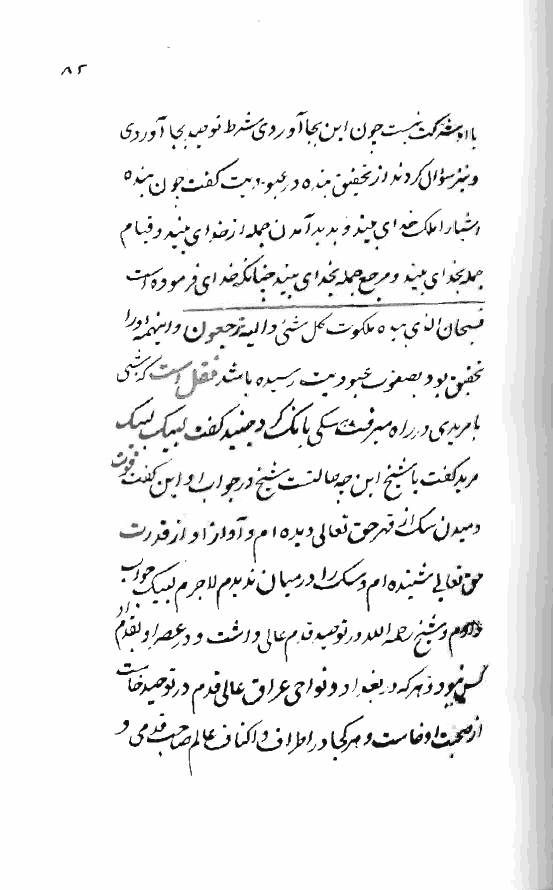 ۸۲
با او شرکت نیست چون این بجا آوردی شرط توحید بجا آوردی
و نیز سؤال کردند از تحقیق بنده در عبودیت گفت چون بنده
اشیا را ملک خدای بیند و پدید آمدن جمله از خدای بیند و قیام
جمله بخدای بیند و مرجع جمله بخدای بیند چنانکه خدای فرموده است
فسبحان الذی بیده ملکوت کل شئ و الیه ترجعون و این همه او را
تحقیق بود بصفوت عبودیت رسیده باشد نقل است که شیخ
با مریدی در راه میرفت سگی بانگ کرد جنید گفت لبیک لبیک
مرید گفت یا شیخ این چه حالست شیخ در جواب او این گفت قوت
دمیدن سگ از قهر حق تعالی دیدم و آواز از قدرت
حق تعالی شنیدم و سگ را در میان ندیدم لاجرم لبیک جواب
دادم و شیخ رحمة الله در توحید قدم عالی داشت و در عصر او بقدم او
کس نبود و هر که در بغداد و نواحی عراق عالی قدم در توحید خاست
از صحبت او خاست و هر کجا در اطراف آفاق عالم صاحب قدمی و